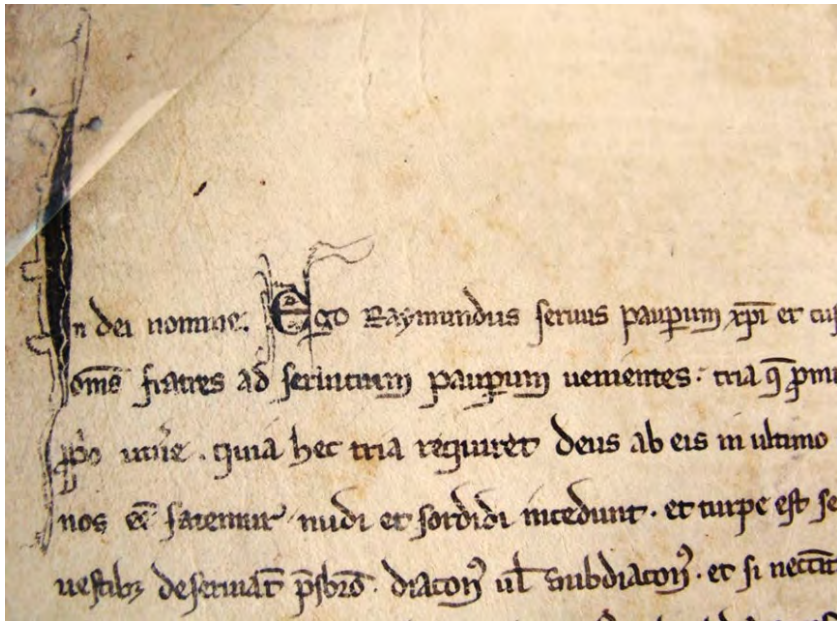 In dei nomine. Ego Raymundus seruus paupum xpi et cu
om̅s fratres ad seruicium paupum uenientes. tria q̅ p̅mi
p̅po uiu̅e. quia hec tria requiret deus ab eis in ultimo
nos e̅e̅ fatemur nudi et sordidi incedunt. et turpe est se
uestibꝫ deseruiat p̅sbro. diaconꝰ ul̅ subdiaconꝰ. et si